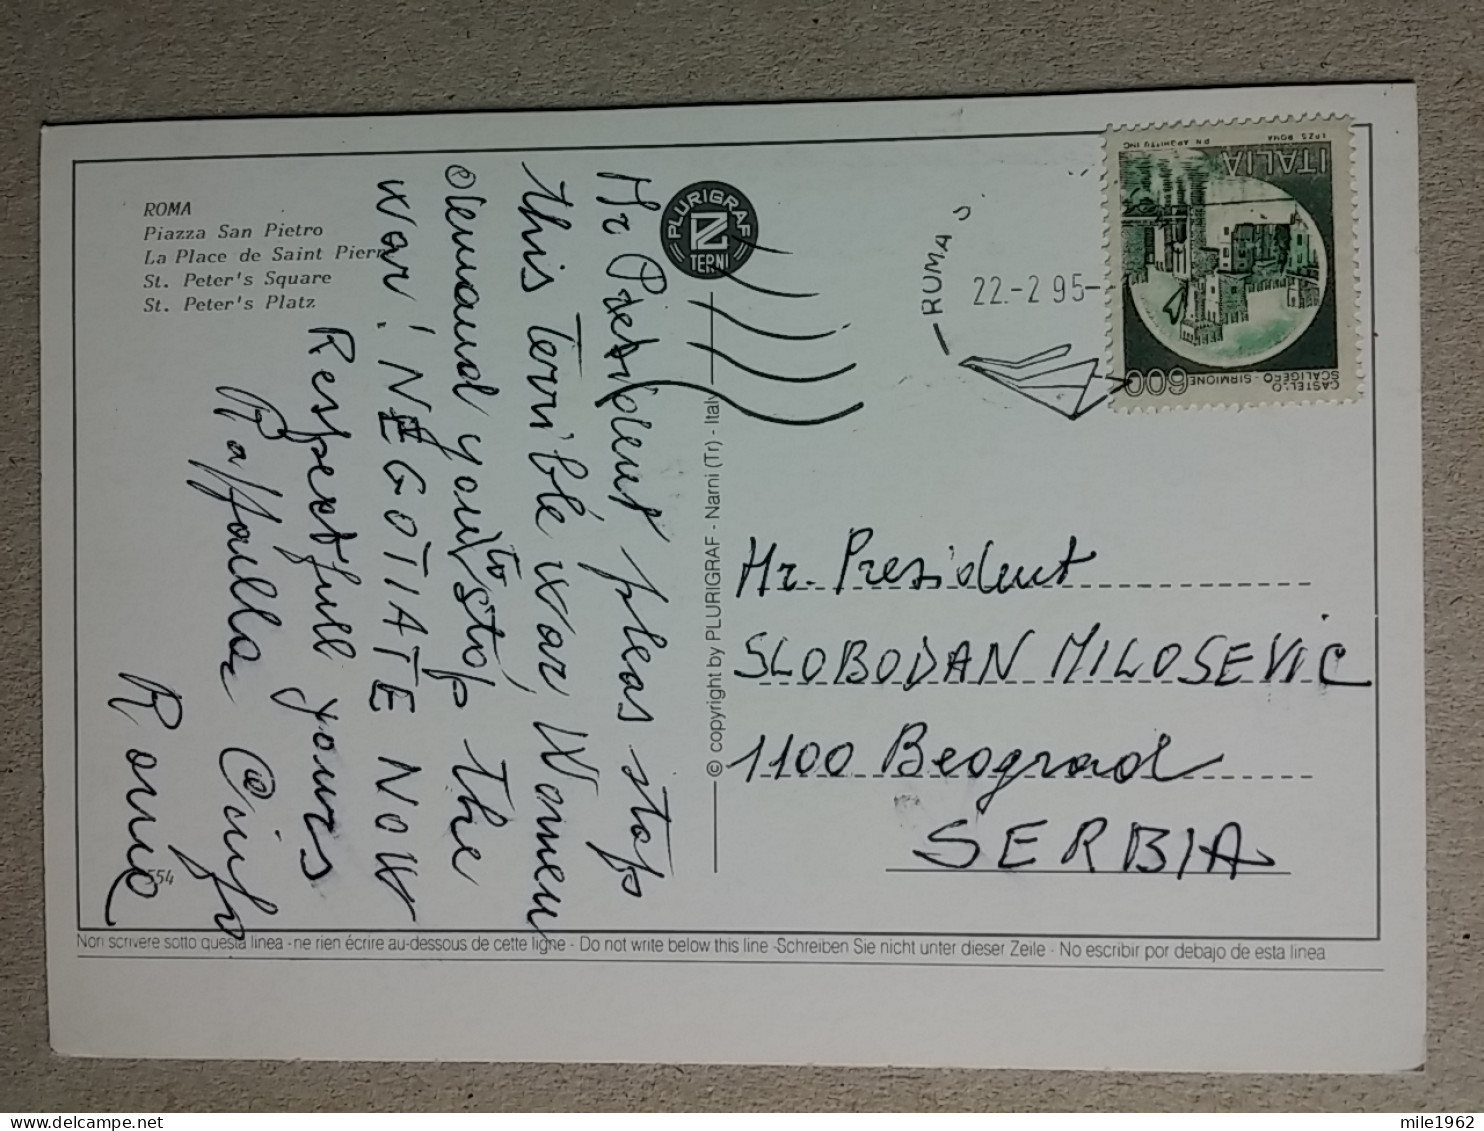 ROMA
Piazza San Pietro
La Place de Saint Pierr
St. Peter's Square
St. Peter's Platz
Mr President pleas stop
this terrible war, Women
demand you to stop the
war! NEGOTIATE NOW
Respectfull yours
Raffaella
Rome
554
PLURIGRAF
TERNI
© copyright by PLURIGRAF - Narni (Tr) - Italy
22.-2 95-
ITALIA
I.P.Z.S. ROMA
600
CASTELLO
SCALIGERO - SIRMIONE
Mr. President
SLOBODAN MILOSEVIC
1100 Beograd
SERBIA
Non scrivere sotto questa linea - ne rien écrire au-dessous de cette ligne - Do not write below this line - Schreiben Sie nicht unter dieser Zeile - No escribir por debajo de esta linea
mile1962